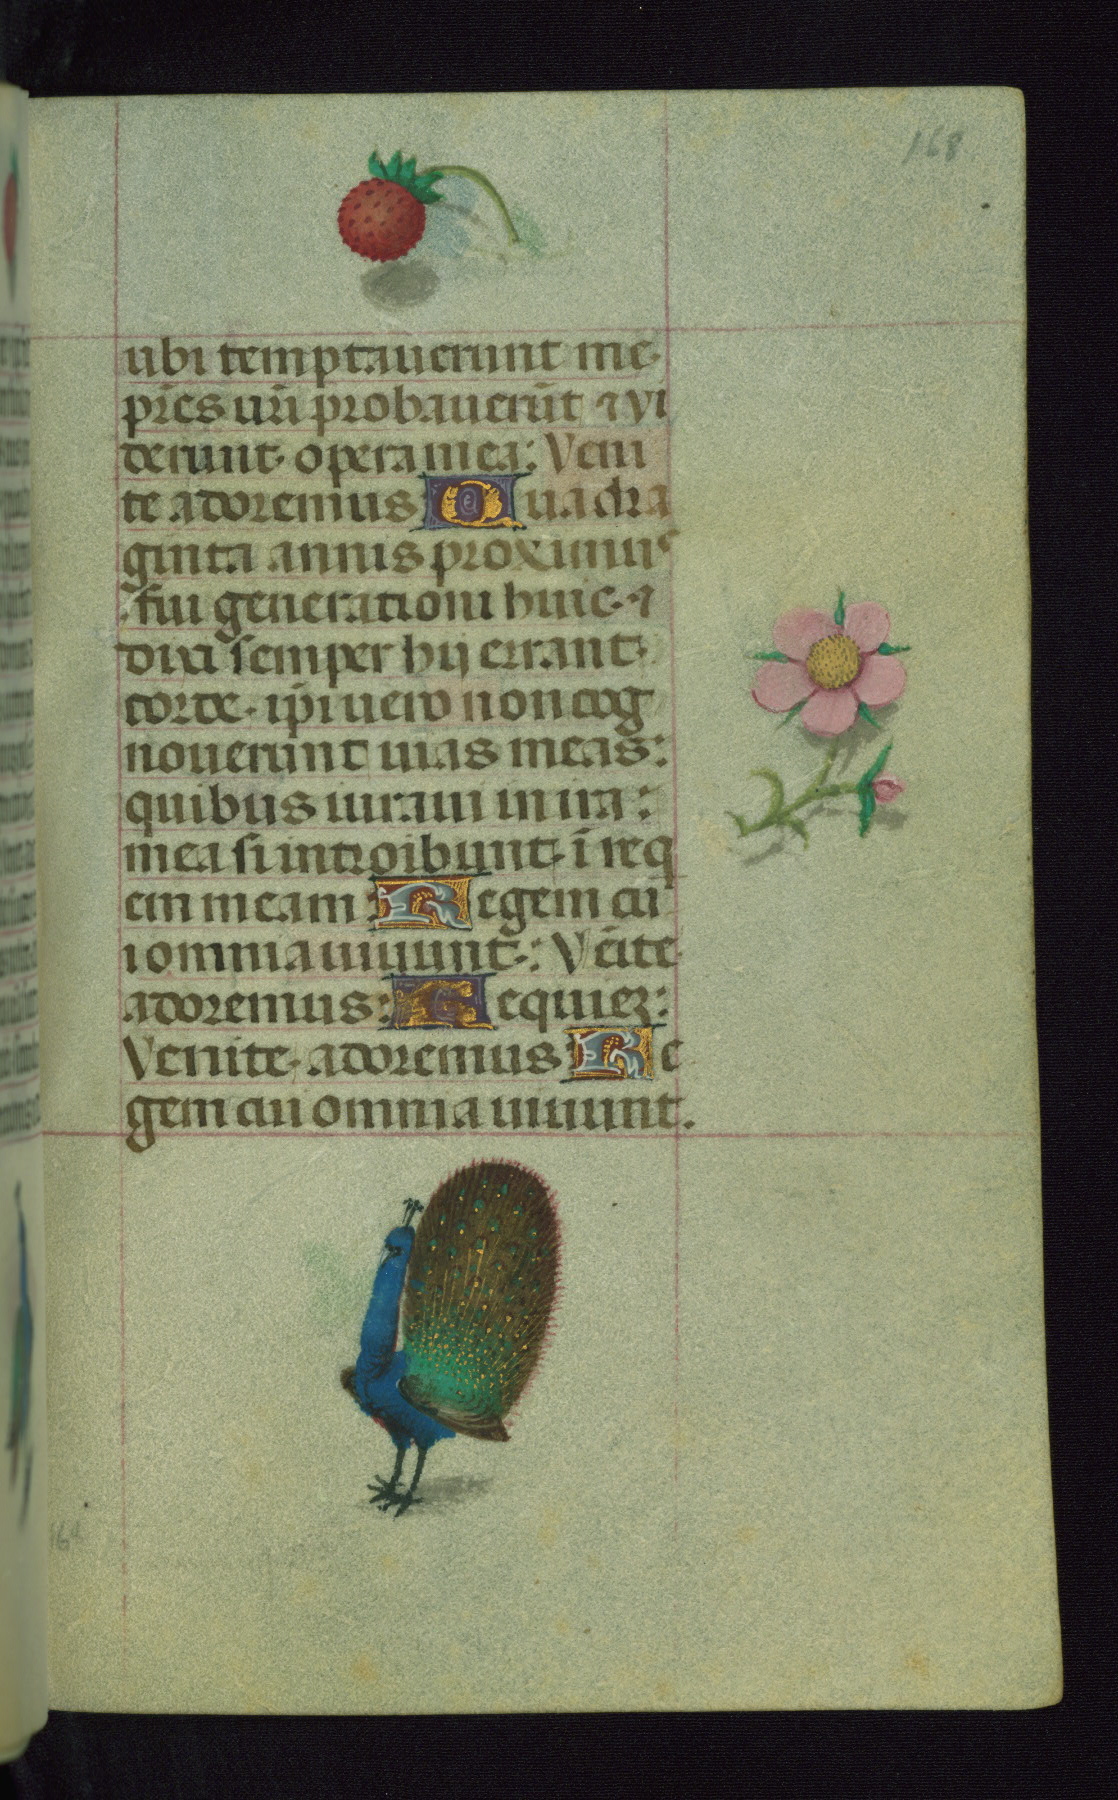 168
ubi temptauerunt me
pr̄es ur̄i probauerūt ⁊ vi
derunt opera mea: Veni
te adoremus Quadra
ginta annis proximus
fui generationi huic · ⁊
dixi semper hij errant
corde · ip̄i uero non cog
nouerunt uias meas:
quibus iuraui in ira:
mea si introibunt ī req
em meam Regem cu
i omnia uiuunt: Vēite
adoremus: Requiez:
Venite adoremus Re
gem cui omnia uiuunt.